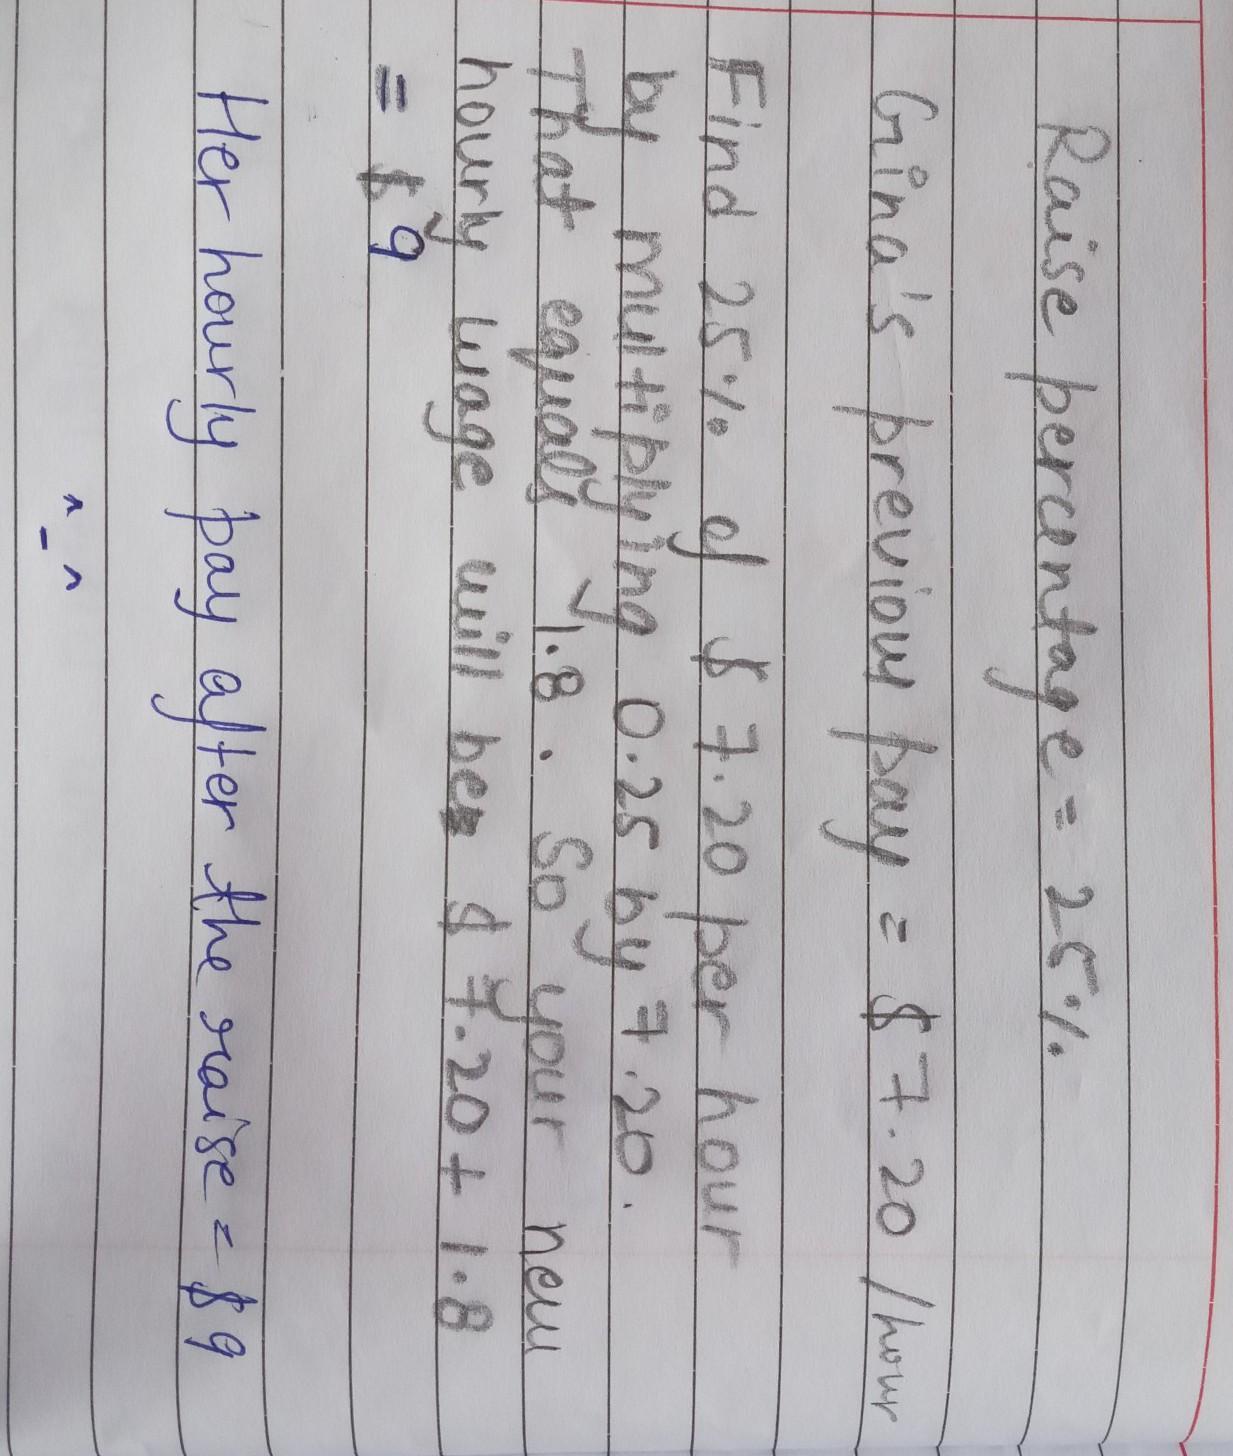 Raise percentage = 25%
Gina's previous pay = $ 7.20 /hour
Find 25% of $ 7.20 per hour
by multiplying 0.25 by 7.20.
That equals 1.8. So your new
hourly wage will be $ 7.20 + 1.8
= $ 9
Her hourly pay after the raise = $ 9
^-^